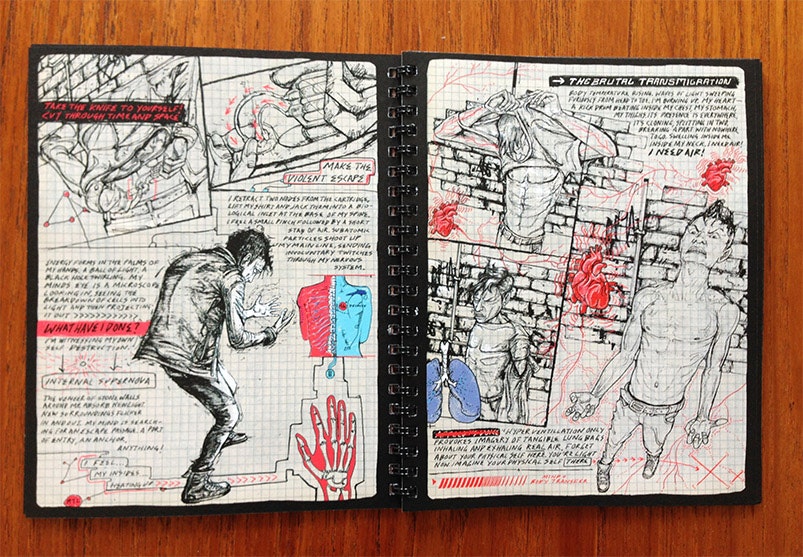 TAKE THE KNIFE TO YOURSELF?
CUT THROUGH TIME AND SPACE
MAKE THE
VIOLENT ESCAPE
I RETRACT TWO NODES FROM THE CARTRIDGE,
LIFT MY SHIRT AND JACK THEM INTO A BIO-
LOGICAL INLET AT THE BASE OF MY SPINE.
I FEEL A SMALL PINCH FOLLOWED BY A SHORT
STAB OF AIR. SUBATOMIC
PARTICLES SHOOT UP
MY MAIN LINE, SENDING
INVOLUNTARY TWITCHES
THROUGH MY NERVOUS
SYSTEM.
ENERGY FORMS IN THE PALMS OF
MY HANDS. A BALL OF LIGHT, A
BLACK HOLE SWIRLING. MY
MINDS EYE IS A MICROSCOPE
LOOKING IN, SEEING THE
BREAKDOWN OF CELLS INTO
LIGHT AND THEN PROJECTING
IT OUT
WHAT HAVE I DONE?
I'M WITNESSING MY OWN
SELF DESTRUCTION.
INTERNAL SUPERNOVA
THE VENEER OF STONE WALLS
AROUND ME ABSORB NEW LIGHT
NEW SURROUNDINGS FLICKER
IN AND OUT. MY MIND IS SEARCH-
ING FOR AN ESCAPE PASSAGE. A PORT
OF ENTRY, AN ANCHOR,
ANYTHING!
I FEEL...
MY INSIDES
HEATING UP
THE BRUTAL TRANSMIGRATION
BODY TEMPERATURE RISING, WAVES OF LIGHT SWEEPING
FURIOUSLY FROM HEAD TO TOE. I'M BURNING UP. MY HEART-
A KICK DRUM BEATING INSIDE MY CHEST, MY STOMACH,
MY THIGHS. ITS PRESENCE IS EVERYWHERE.
IT'S CLONING, SPLITTING IN TWO,
BREAKING APART WITH NOWHERE
TO GO. SWELLING INSIDE ME
INSIDE MY NECK. I NEED AIR!
I NEED AIR!
"HYPERVENTILATION ONLY
PROVOKES IMAGERY OF TANGIBLE LUNG BAGS
INHALING AND EXHALING REAL AIR. FORGET
ABOUT YOUR PHYSICAL SELF HERE. YOU'RE LIGHT
NOW. IMAGINE YOUR PHYSICAL SELF THERE."
BODY TRANSFER